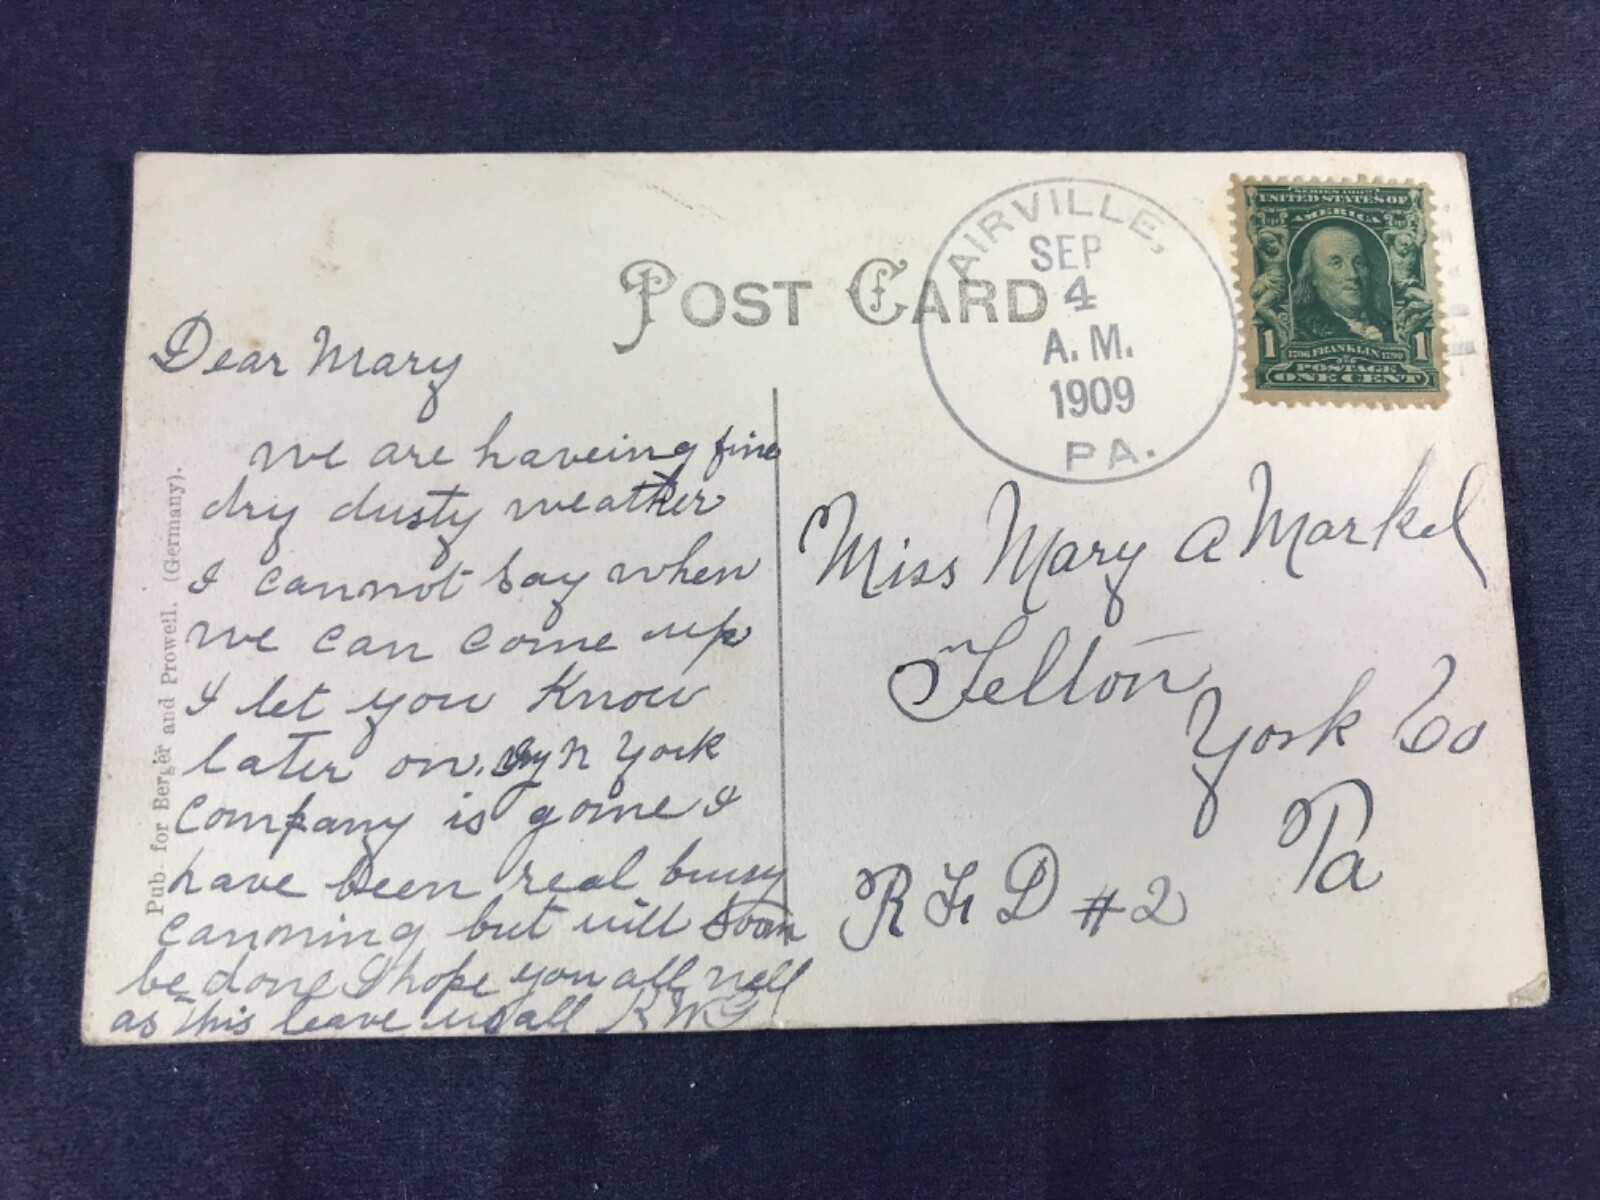 POST CARD
AIRVILLE,
SEP
4
A. M.
1909
PA.
SERIES 1902
UNITED STATES OF
AMERICA
1 1706 FRANKLIN 1790 1
POSTAGE
ONE CENT
Dear Mary
we are haveing fine
dry dusty weather
I cannot say when
we can come up
I let you know
later on. my N York
Company is gone I
have been real busy
canning but will soon
be done I hope you all well
as this leave us all
Miss Mary A Markel
Felton
York Co
Pa
R F D #2
Pub. for Berger and Prowell. (Germany).